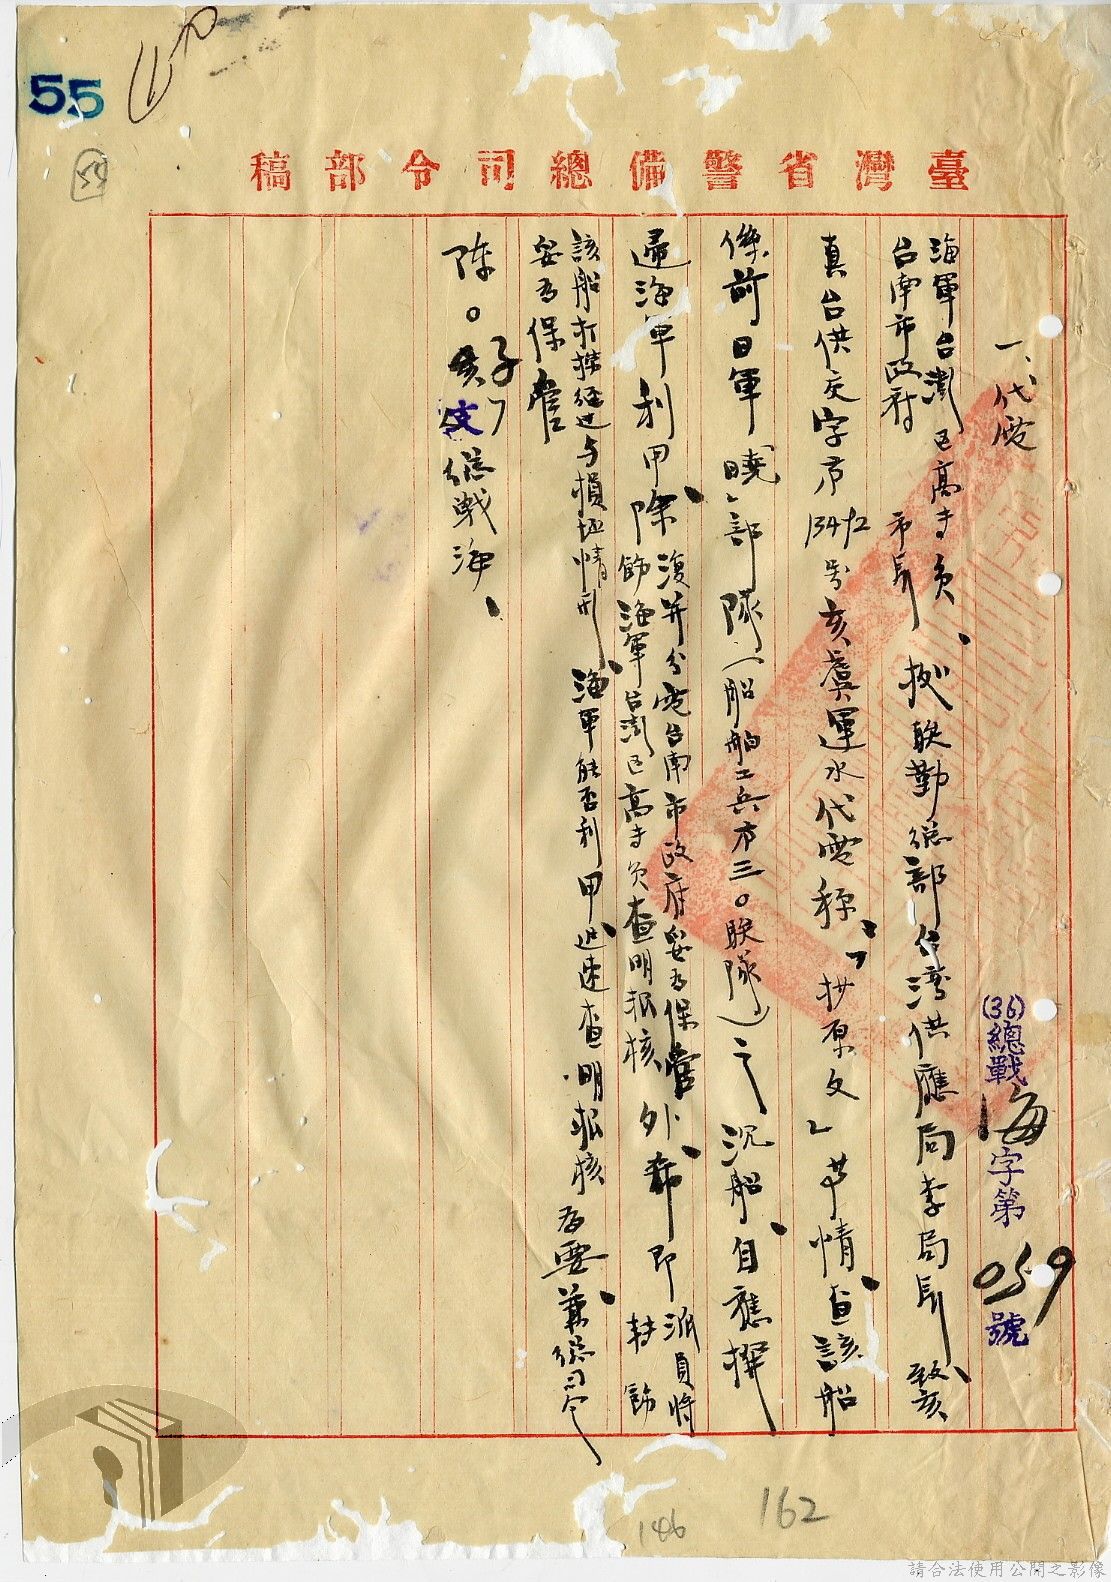 55
55
臺灣省警備總司令部稿
(36)總戰海字第059號
一、代電
海軍台澎區高專員、
台南市政府市長
據聯勤總部台灣供應局李局長致亥
真台供交字第13492號亥虞運水代電稱、「抄原文」等情、查該船
係前日軍「曉」部隊(船舶工兵第三0聯隊)之沉船、自應撥
還海軍利用、除
復并分電台南市政府妥為保管
飭海軍台澎區高專員查明報核
外、希即
派員將
轉飭
該船打撈經過与損壞情形、海軍能否利用、迅速查明報核為要、兼總司令
妥為保管
陳0子支總戰海、
146
162
請合法使用公開之影像